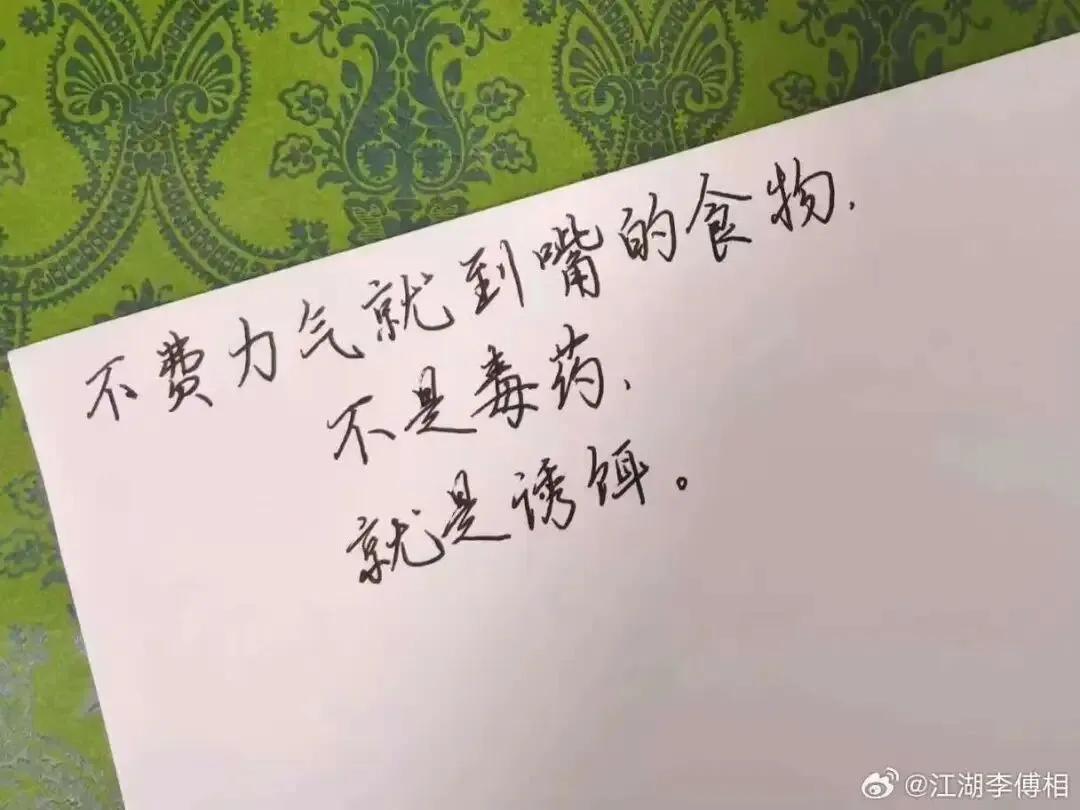 不费力气就到嘴的食物,
不是毒药,
就是诱饵。
@江湖李傅相